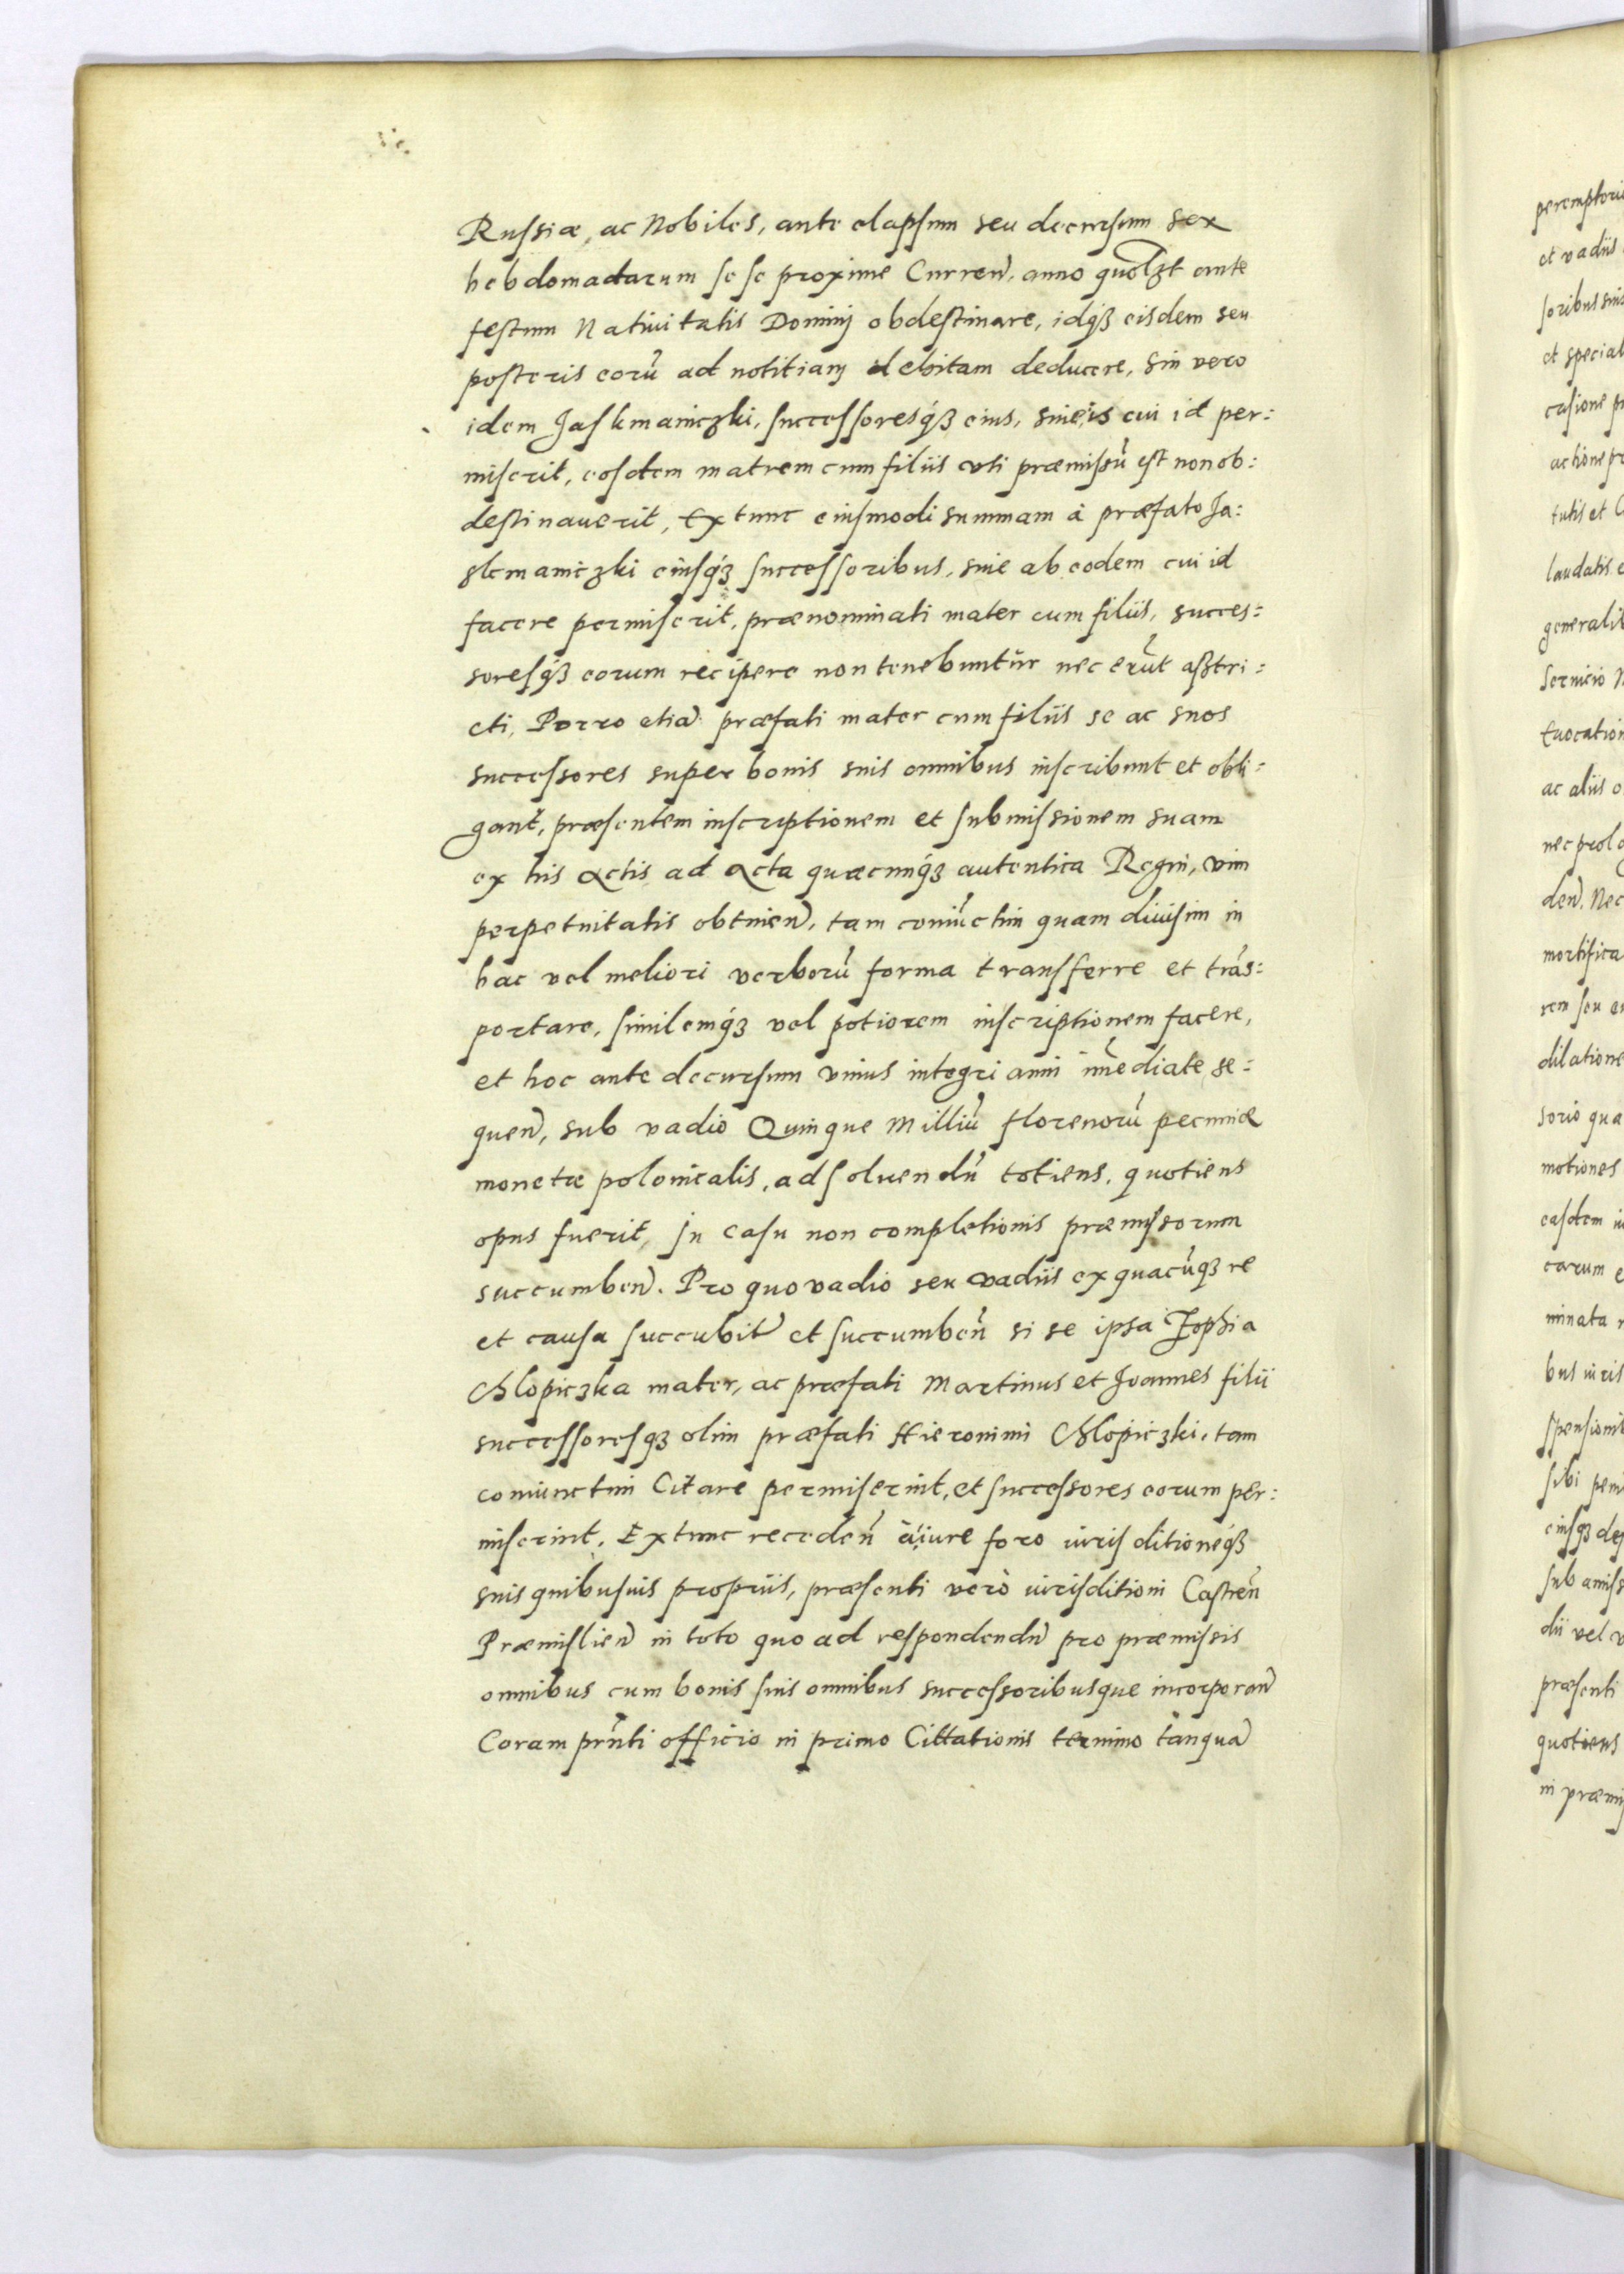 Russiæ, ac Nobiles, ante elapsum seu decursum sex
hebdomadarum se se proxime Curren̄, anno quolꝫt ante
festum Natiuitatis Dominij obdestinare, idqꝫ eisdem seu
posteris eorū ad notitiam debitam deducere, Sin vero
idem Jaskmaniczki, successoresqꝫ eius, siue is cui id per:
miserit, eosdem matrem cum filiis vti præmissū est non ob:
destinauerit, Extunc eiusmodi summam à præfato Ja:
skmaniczki eiusqꝫ successoribus, siue ab eodem cui id
facere permiserit, prænominati mater cum filiis, succes:
soresqꝫ eorum recipere non tenebuntur nec erūt astri:
cti, Porro etiā præfati mater cum filiis se ac suos
successores super bonis suis omnibus inscribunt et obli:
gant, præsentem inscriptionem et submissionem suam
ex his Actis ad Acta quæcunqꝫ autentica Regni, vim
perpetuitatis obtinen̄, tam coniūctim quam diuisim in
hac vel meliori verborū forma transferre et trās:
portare, similemqꝫ vel potiorem inscriptionem facere,
et hoc ante decursum vnius integri anni īmediate se:
quen̄, sub vadio Quinque Milliū florenorū pecuniæ
monetæ polonicalis, ad soluendū totiens, quotiens
opus fuerit, in casu non completionis præmissorum
succumben̄. Pro quo vadio seu vadiis ex quacūqꝫ re
et causa succubit et succumben̄ si se ipsa Zophia
Chlopiczka mater, ac præfati Martinus et Joannes filii
successoresqꝫ olim præfati Hieronimi Chlopiczki, tam
coniunctim Citare permiserint, et successores eorum per:
miserint, Extunc receden̄ à iure foro iurisditioneqꝫ
suis quibusuis propriis, præsenti verò iurisditioni Castren̄
Præmislien̄ in toto quo ad respondendū pro præmissis
omnibus cum bonis suis omnibus successoribusque incorporan̄
Coram prn̄ti officio in primo Cittationis termino tanquā
peremptori
et vadiis
soribus suis
et special
casione
actione
tutis et
laudatis
general
Seruicio
Euocation
ac aliis
nec prolo
den̄. Nec
mortifica
rem seu
dilatione
sorio qua
motiones
easdem
carum
minata
bus iuris
spensioni
sibi peni
eiusqꝫ
sub amiss
dii vel
præsenti
quotiens
in præmi